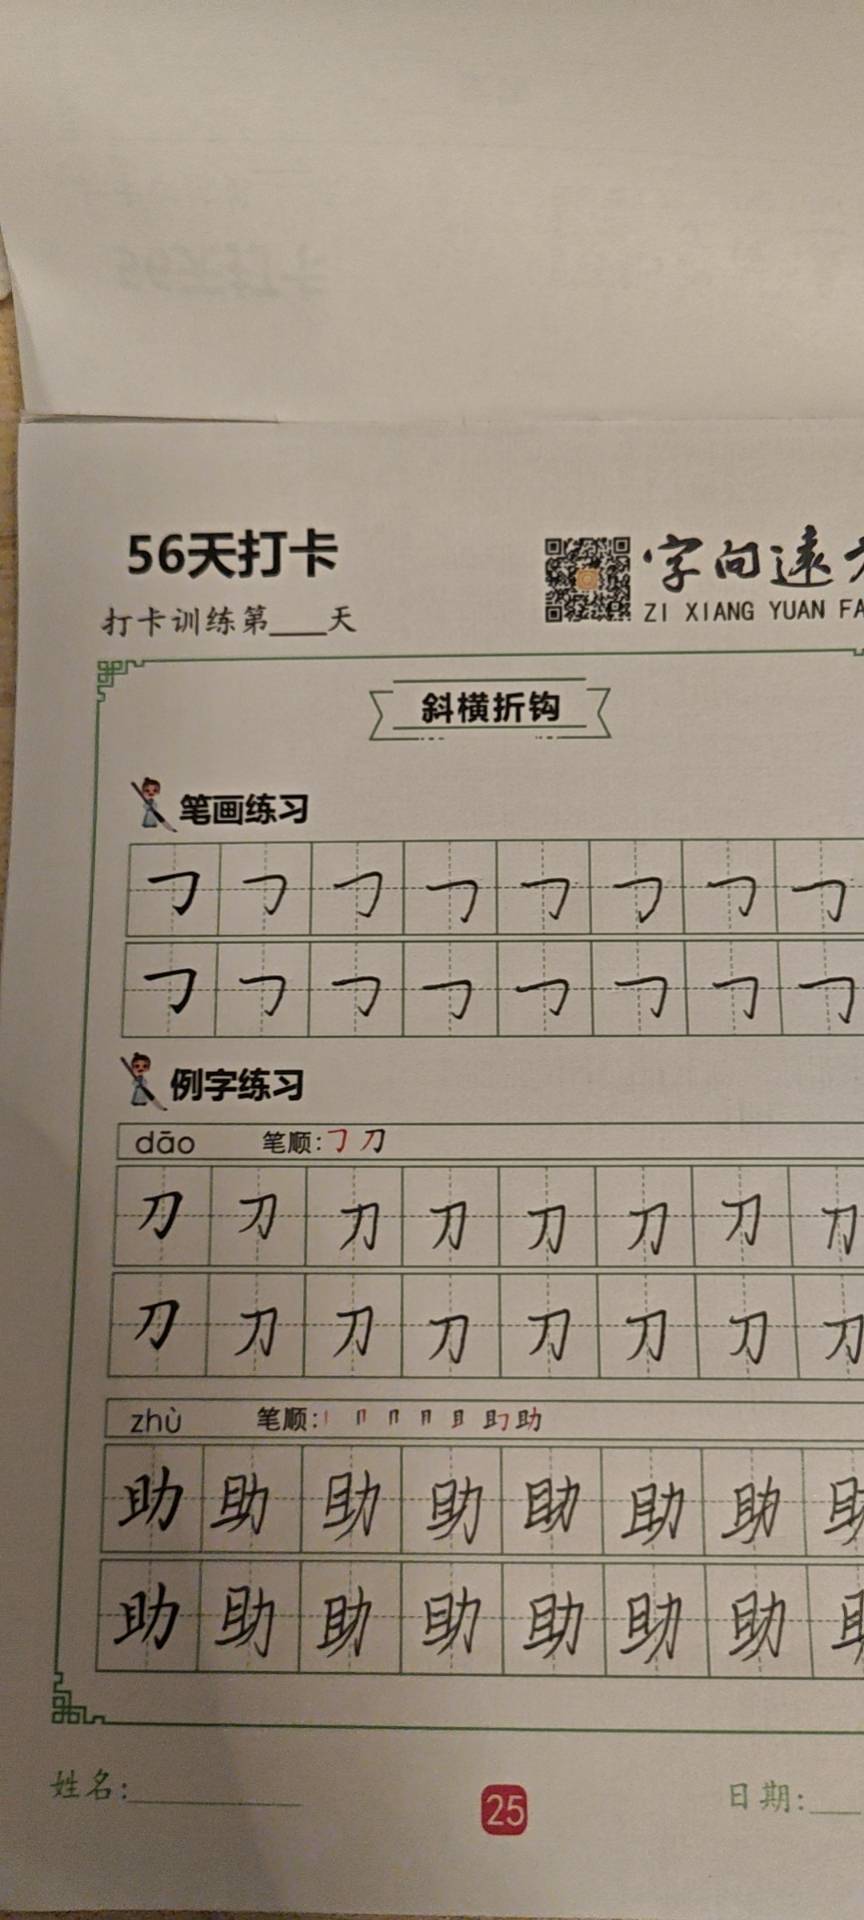 56天打卡
字向遠
打卡训练第___天
ZI XIANG YUAN FA
斜横折钩
笔画练习
㇆ ㇆ ㇆ ㇆ ㇆ ㇆ ㇆ ㇆
㇆ ㇆ ㇆ ㇆ ㇆ ㇆ ㇆ ㇆
例字练习
dāo 笔顺:㇆ 刀
刀 刀 刀 刀 刀 刀 刀 刀
刀 刀 刀 刀 刀 刀 刀 刀
zhù 笔顺: 助
助 助 助 助 助 助 助
助 助 助 助 助 助 助
姓名:
25
日期: